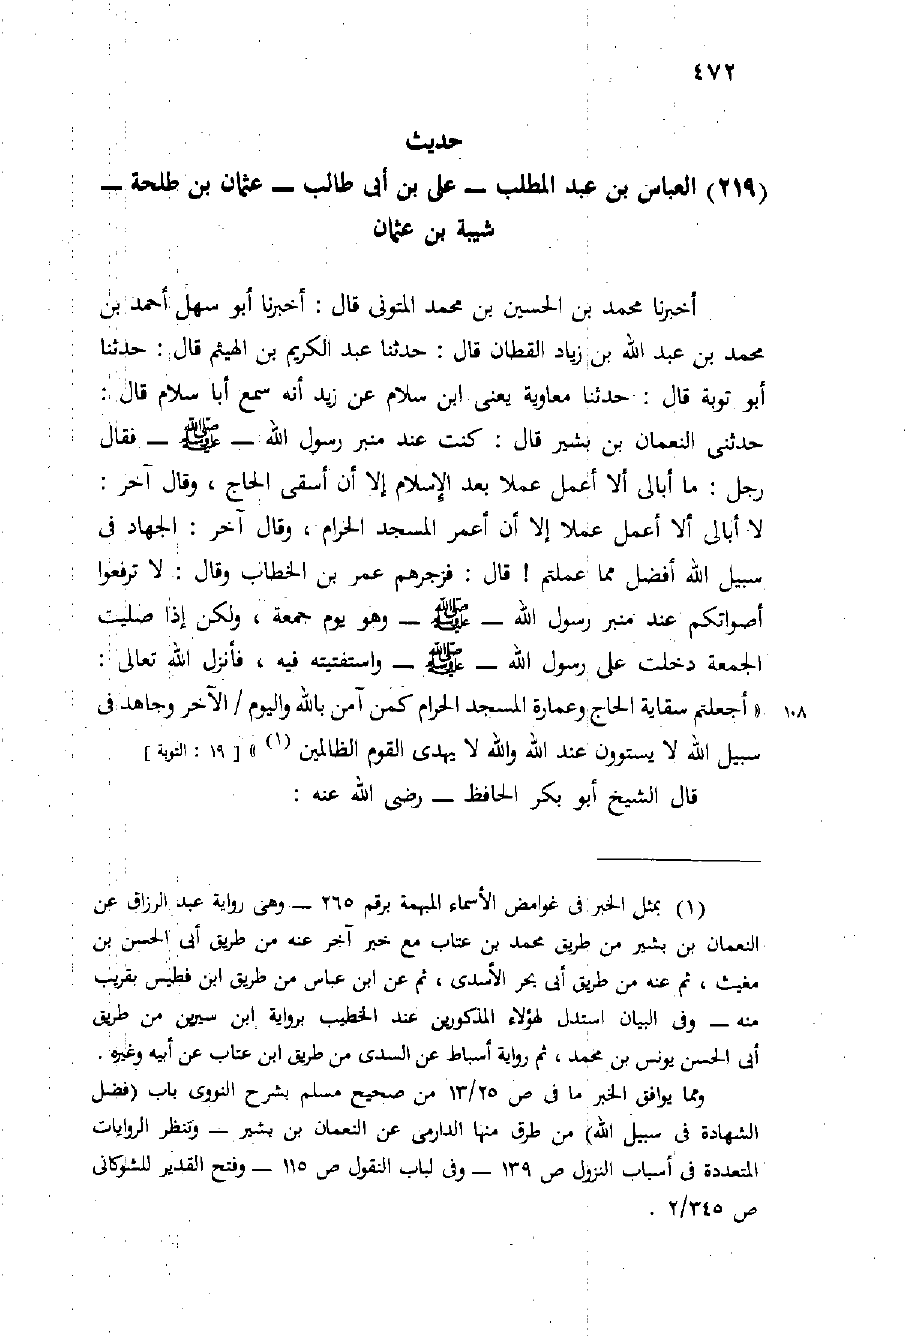 ٤٧٢
حديث
(٢١٩) العباس بن عبد المطلب — على بن أبى طالب — عثمان بن طلحة —
شيبة بن عثمان
أخبرنا محمد بن الحسين بن محمد المتوثى قال : أخبرنا أبو سهل أحمد بن
محمد بن عبد الله بن زياد القطان قال : حدثنا عبد الكريم بن الهيثم قال : حدثنا
أبو توبة قال : حدثنا معاوية يعنى ابن سلام عن زيد أنه سمع أبا سلام قال :
حدثنى النعمان بن بشير قال : كنت عند منبر رسول الله — ﷺ — فقال
رجل : ما أبالى ألا أعمل عملا بعد الإسلام إلا أن أسقى الحاج ، وقال آخر :
لا أبالى ألا أعمل عملا إلا أن أعمر المسجد الحرام ، وقال آخر : الجهاد فى
سبيل الله أفضل مما عملتم ! قال : فزجرهم عمر بن الخطاب وقال : لا ترفعوا
أصواتكم عند منبر رسول الله — ﷺ — وهو يوم جمعة ، ولكن إذا صليت
الجمعة دخلت على رسول الله — ﷺ — واستفتيته فيه ، فأنزل الله تعالى :
١٠٨ « أجعلتم سقاية الحاج وعمارة المسجد الحرام كمن آمن بالله واليوم / الآخر وجاهد فى
سبيل الله لا يستوون عند الله والله لا يهدى القوم الظالمين (١) » [ ١٩ : التوبة ]
قال الشيخ أبو بكر الحافظ — رضى الله عنه :
(١) بمثل الخبر فى غوامض الأسماء المبهمة برقم ٢٦٥ — وهى رواية عبد الرزاق عن
النعمان بن بشير من طريق محمد بن عتاب مع خبر آخر عنه من طريق أبى الحسن بن
مغيث ، ثم عنه من طريق أبى بحر الأسدى ، ثم عن ابن عباس من طريق ابن فطيس بقريب
منه — وفى البيان استدل لهؤلاء المذكورين عند الخطيب برواية ابن سيرين من طريق
أبى الحسن يونس بن محمد ، ثم رواية أسباط عن السدى من طريق ابن عتاب عن أبيه وغيره .
ومما يوافق الخبر ما فى ص ١٣/٢٥ من صحيح مسلم بشرح النووى باب (فضل
الشهادة فى سبيل الله) من طرق منها الدارمى عن النعمان بن بشير — وتنظر الروايات
المتعددة فى أسباب النزول ص ١٣٩ — وفى لباب النقول ص ١١٥ — وفتح القدير للشوكانى
ص ٢/٣٤٥ .